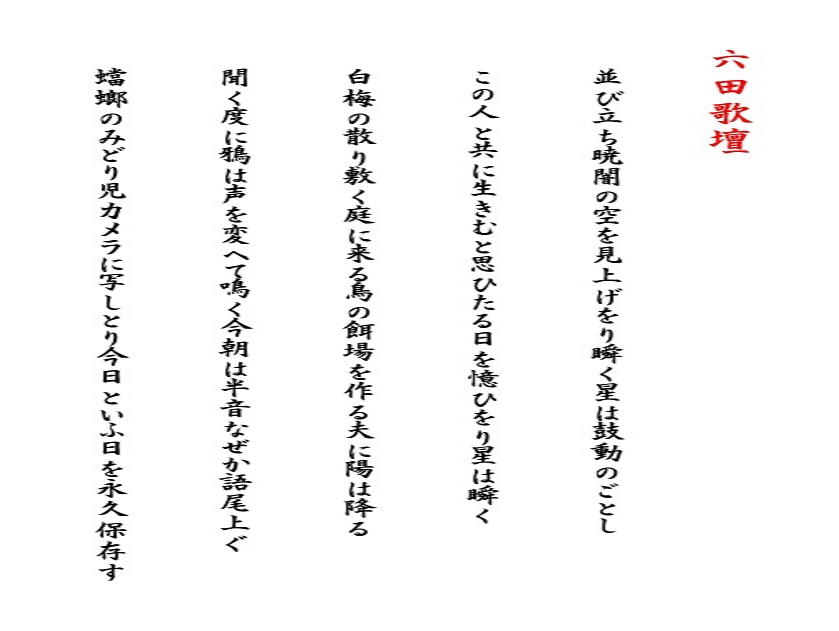 六田歌壇
並び立ち暁闇の空を見上げをり瞬く星は鼓動のごとし
この人と共に生きむと思ひたる日を憶ひをり星は瞬く
白梅の散り敷く庭に来る鳥の餌場を作る夫に陽は降る
聞く度に鴉は声を変へて鳴く今朝は半音なぜか語尾上ぐ
蟷螂のみどり児カメラに写しとり今日といふ日を永久保存す